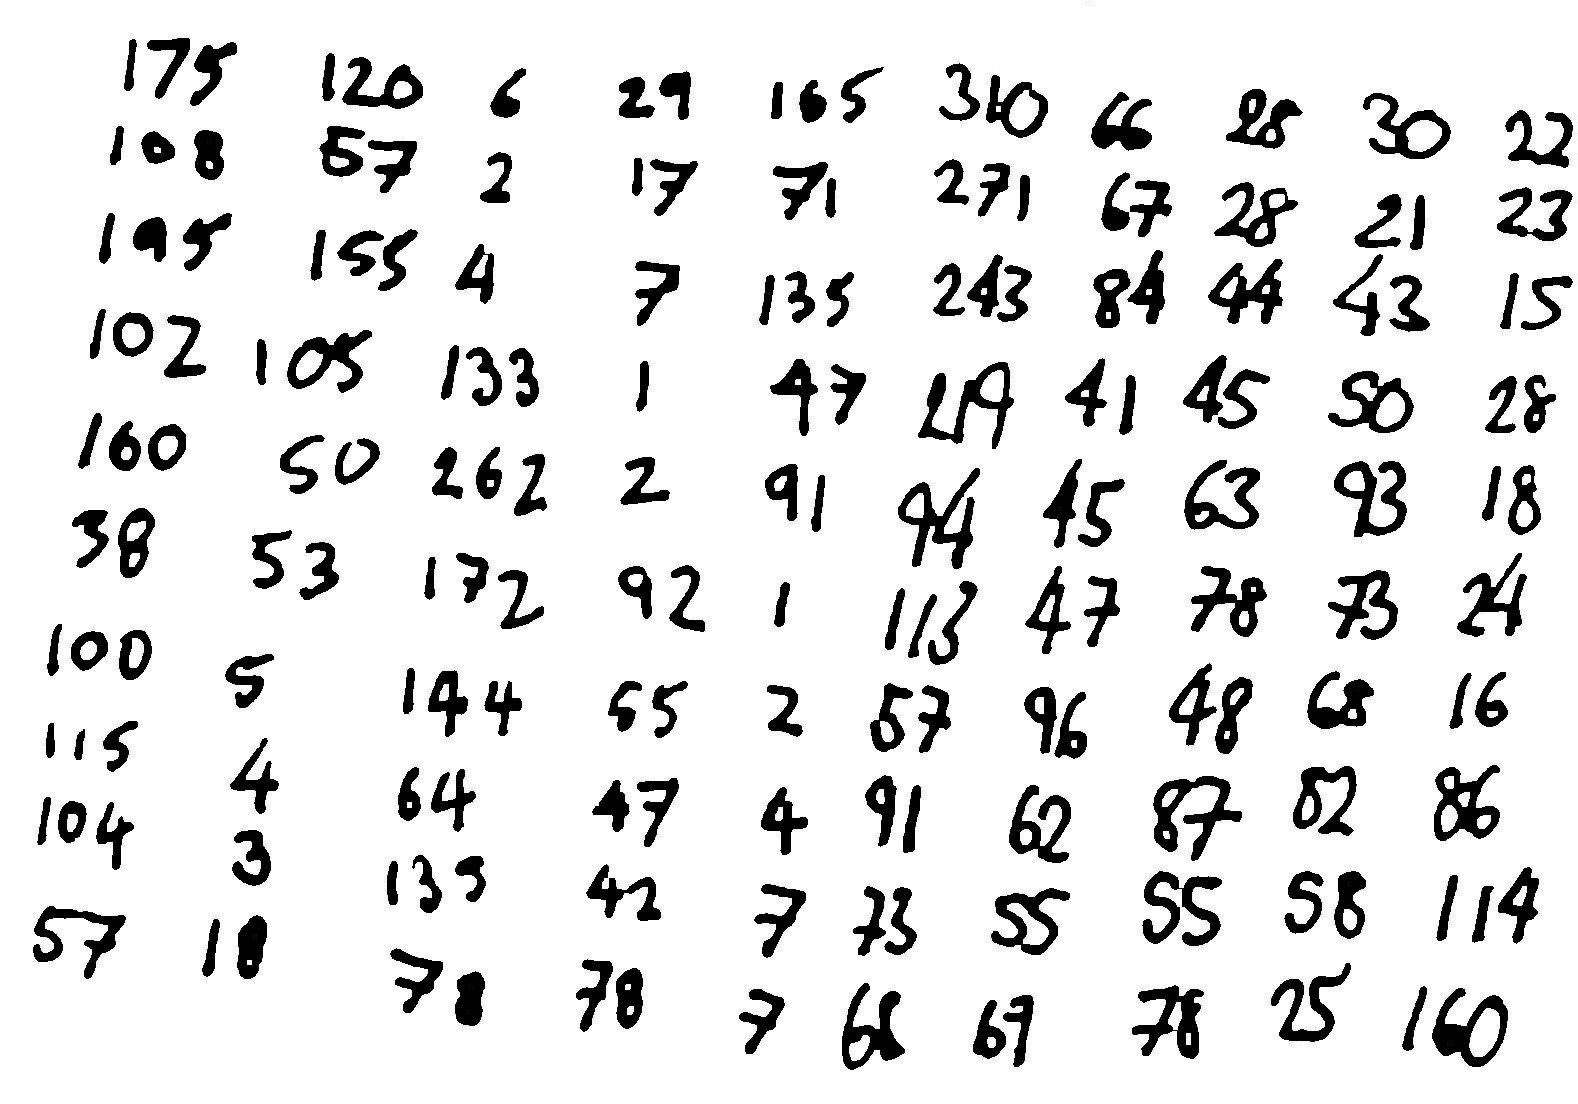 175 120 6 29 165 310 66 28 30 22
108 57 2 17 71 271 67 28 21 23
195 155 4 7 135 243 84 44 43 15
102 105 133 1 47 219 41 45 50 28
160 50 262 2 91 94 45 63 93 18
38 53 172 92 1 113 47 78 73 24
100 5 144 55 2 57 96 48 68 16
115 4 64 47 4 91 62 87 82 86
104 3 135 42 7 73 55 55 58 114
57 18 78 78 7 68 69 78 25 160